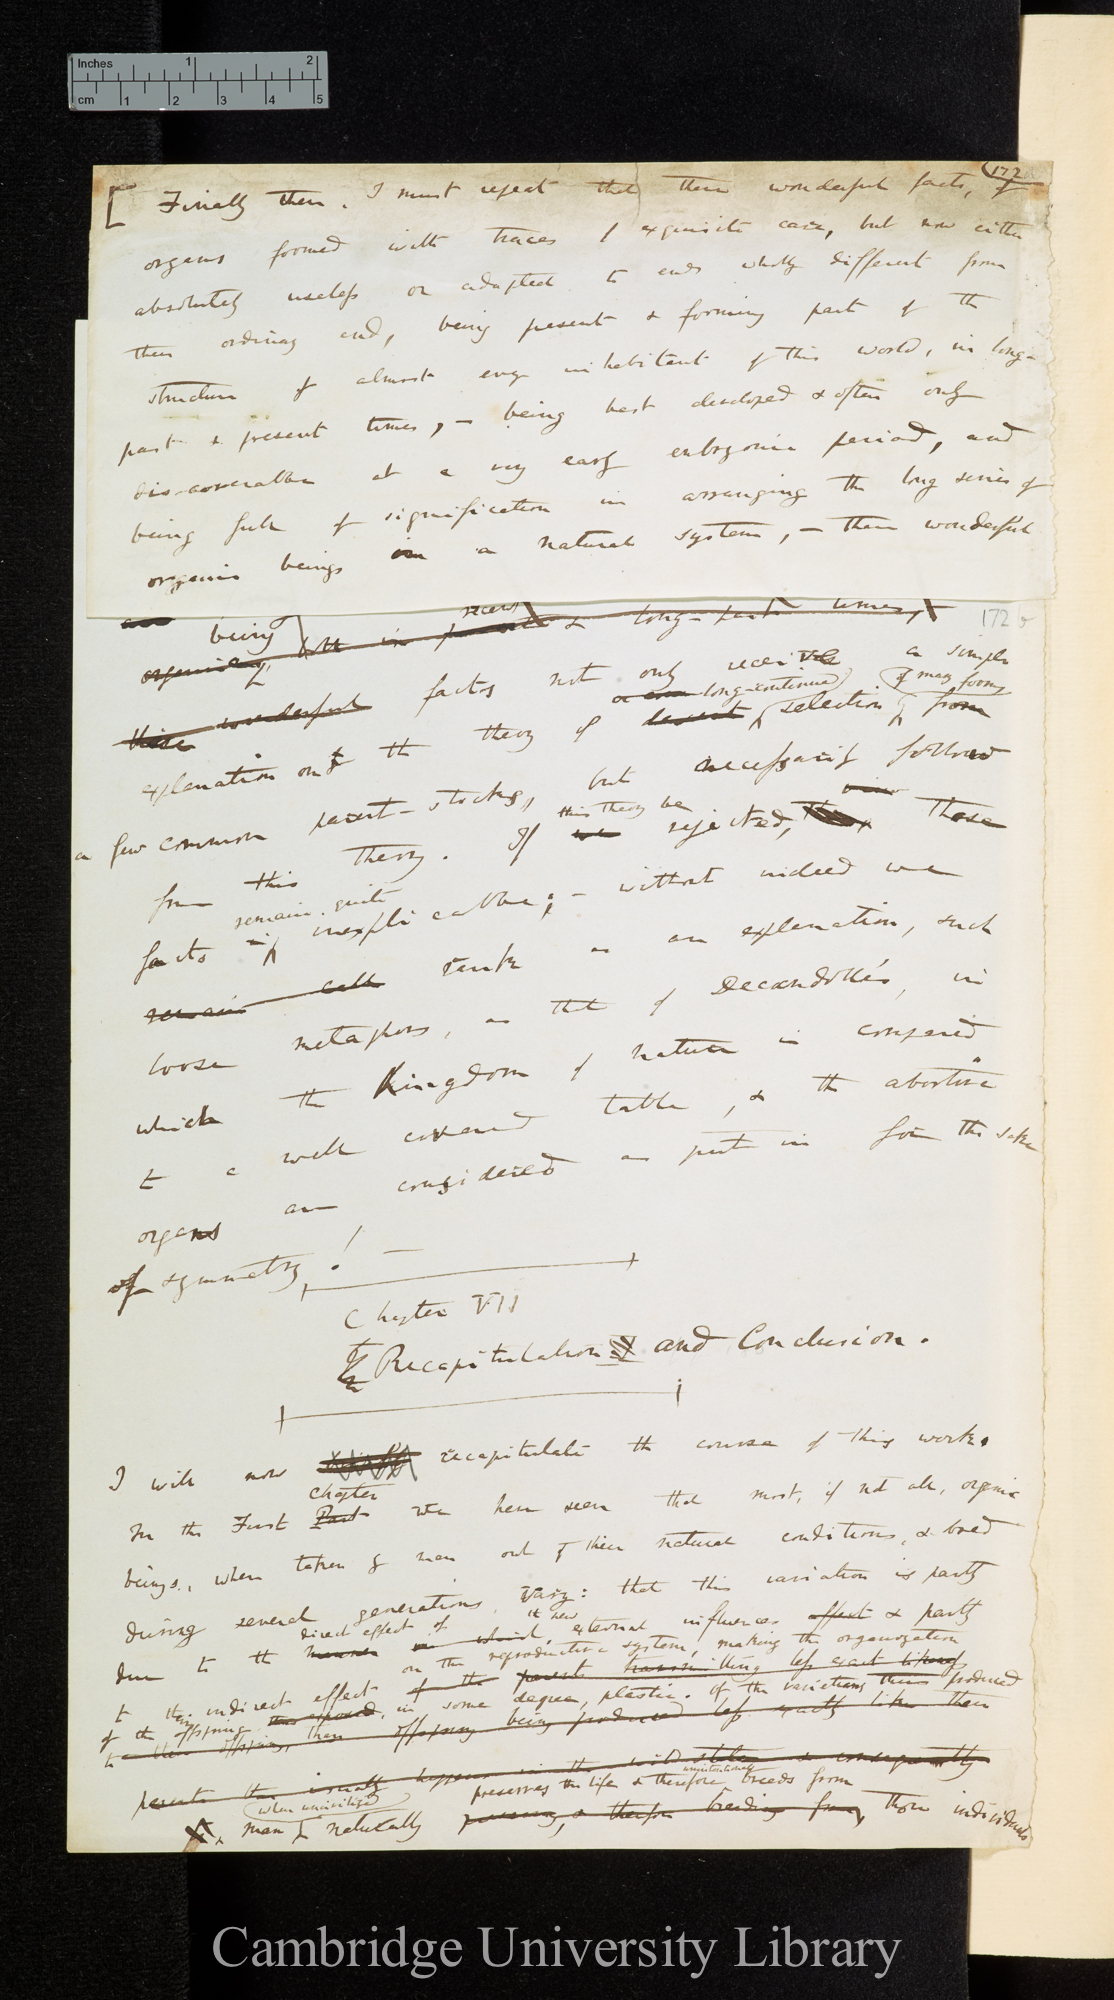 Inches 1 2
cm 1 2 3 4 5
(172
[ Finally then, I must repeat that these wonderful facts, of
organs formed with traces of exquisite care, but now either
absolutely useless or adapted to ends wholly different from
their ordinary end, being present & forming part of the
structure of almost every inhabitant of this world, in long-
past & present times, – being best developed & often only
discoverable at a very early embryonic period, and
being full of signification in arranging the long series of
organic beings in a natural system, – these wonderful
172 b
being
long-past times,
these wonderful facts not only receive a simple
long-continued if many forms
explanation on the theory of descent selection from
a few common parent-stocks, but necessarily follow
this theory be
from this theory. If rejected, these
remain quite
facts inexplicable; – without indeed we
remain rank as an explanation, such
loose metaphors, as that of Decandolle's, in
which the Kingdom of nature is compared
to a well covered table, & the abortive
organs are considered as put in for the sake
of symmetry! –
Chapter VII
Recapitulation and Conclusion.
I will now recapitulate the course of this work.
Chapter
In the First Part we have seen that most, if not all, organic
beings, when taken by man out of their natural conditions, & bred
during several generations, vary: that this variation is partly
direct effect of the new
due to the external influences effect & partly
on the reproductive system, making the organization
to the indirect effect of the parents transmitting less exact
of the offspring in some degree, plastic. Of the variations thus produced
their offspring being produced less exactly like their
parents than usually happens in the wild state & consequently
unintentionally
preserves the life & therefore breeds from
when uncivilised
man naturally & therefore breeding from, those individuals
Cambridge University Library